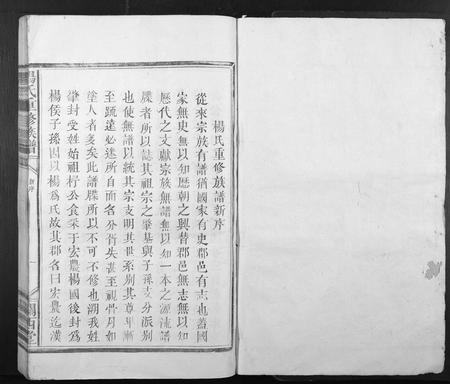 楊氏重修族譜新序
從來宗族有譜猶國家有史郡邑有志也蓋國
家無史無以知歷朝之興替郡邑無志無以知
歷代之文獻宗族無譜無以知一本之源流譜
牒者所以誌其祖宗之肇基與子孫支分派別
也使無譜以統其宗支明其世系別其尊卑漸
至疏遠必迷所自而名分倒失甚至視骨月如
塗人者多矣此譜牒所以不可不修也溯我姓
肇封受姓始祖杼公食采于宏農楊國後封為
楊侯子孫因以楊為氏故其郡名曰宏農迄漢
楊氏重修族譜
新序
一
關西堂